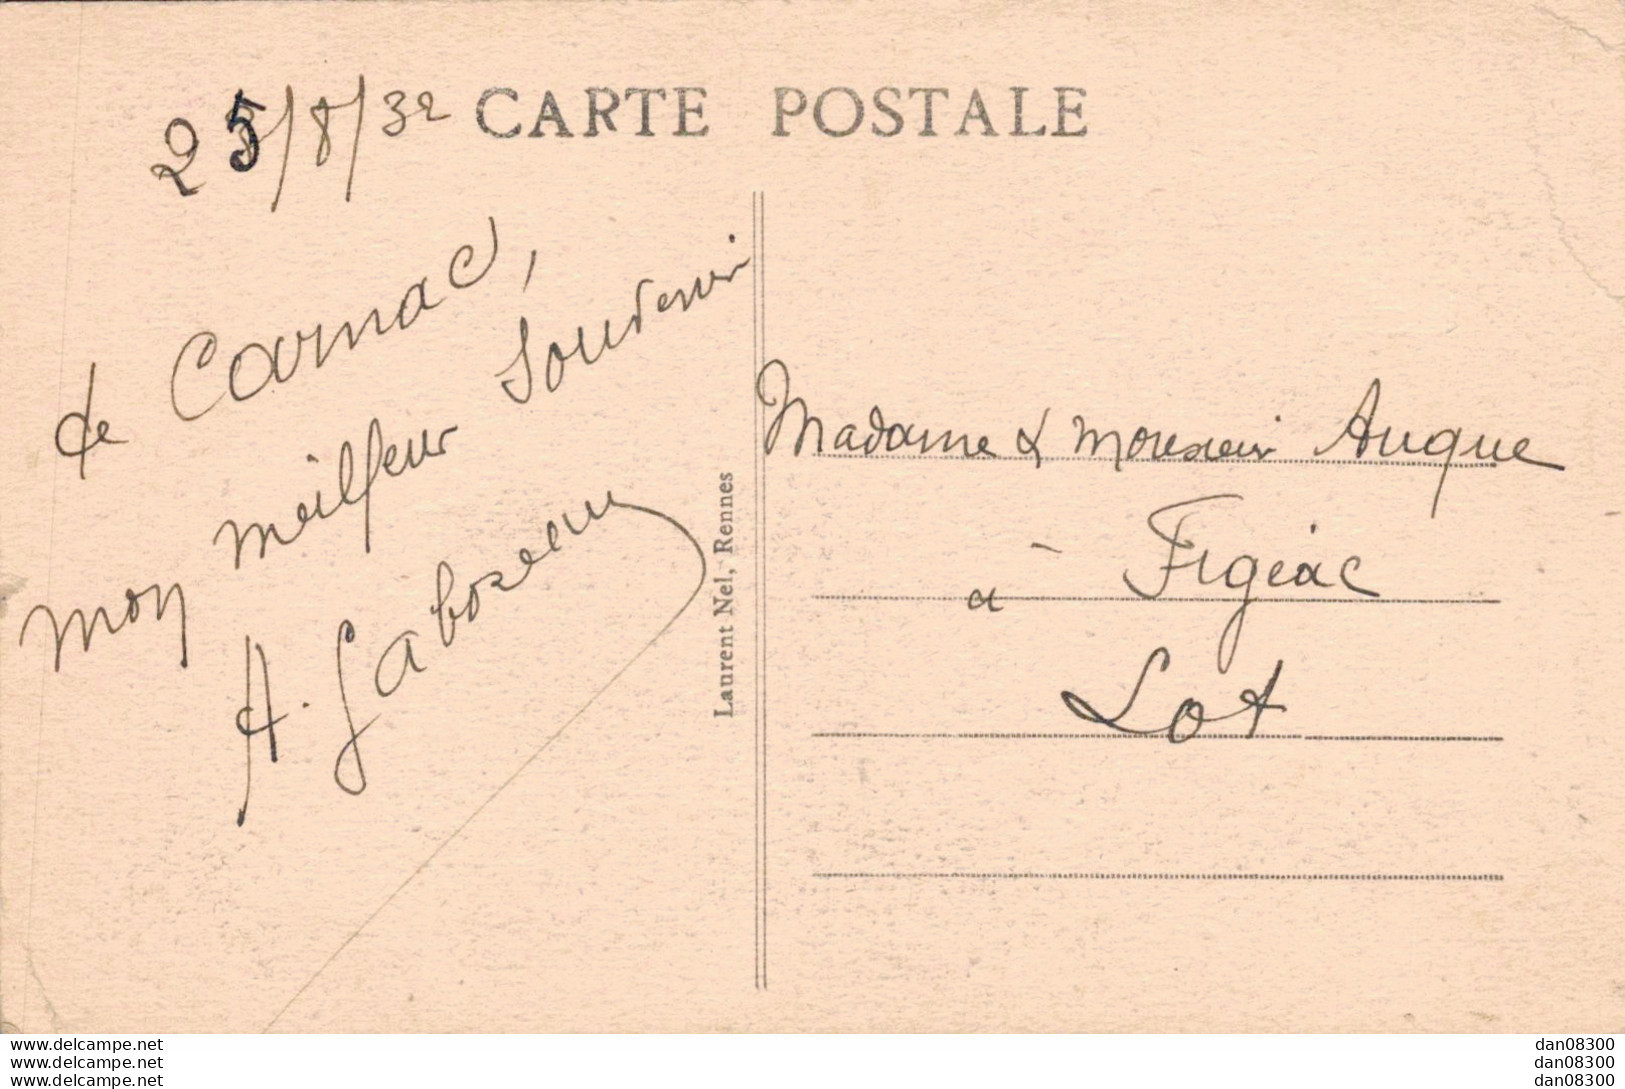 25/8/32
CARTE POSTALE
de Carnac,
mon meilleur souvenir
A. Gaboreau
Laurent Nel, Rennes
Madame & Monsieur Auque
à Figeac
Lot
www.delcampe.net
www.delcampe.net
www.delcampe.net
dan08300
dan08300
dan08300